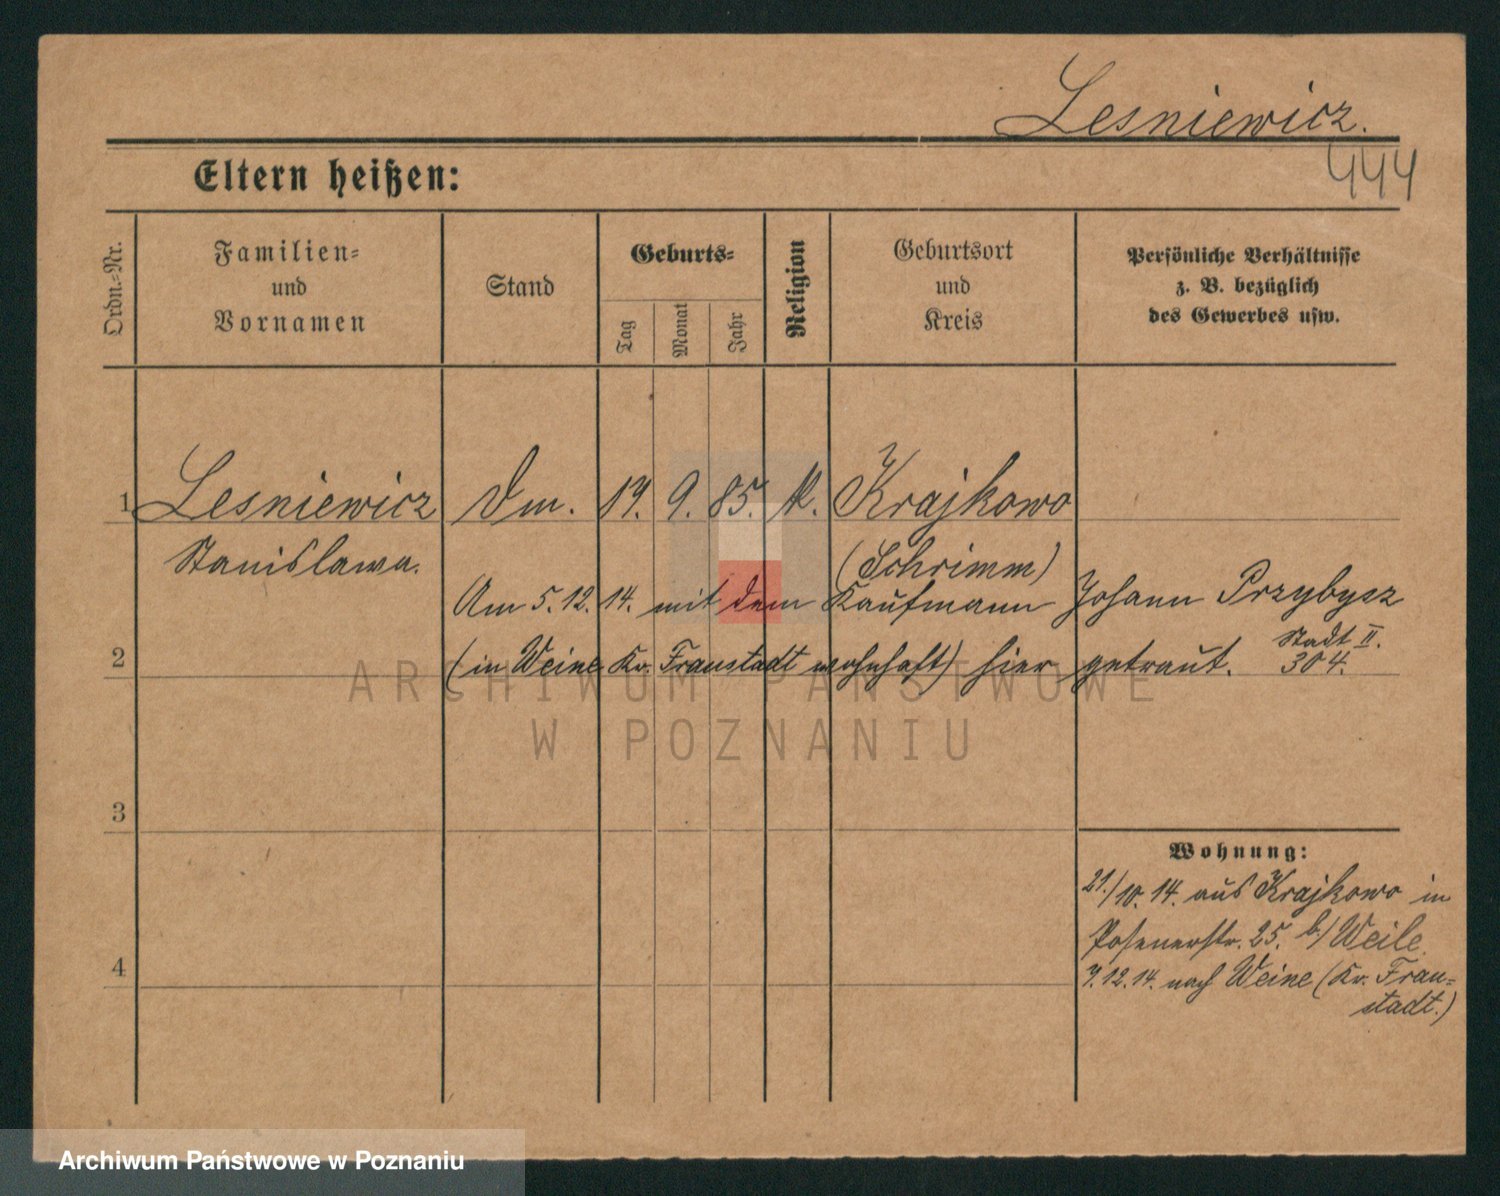 Lesniewicz.
444
Eltern heißen:
Ordn.-Nr.
Familien-
und
Vornamen
Stand
Geburts-
Tag
Monat
Jahr
Religion
Geburtsort
und
Kreis
Persönliche Verhältnisse
z. B. bezüglich
des Gewerbes usw.
1 Lesniewicz Dm. 19. 9. 85. k. Krajkowo
Stanislawa. (Schrimm)
Am 5.12.14. mit dem Kaufmann Johann Przybysz
2 (in Weine Kr. Fraustadt wohnhaft) hier getraut. Stadt II.
304.
ARCHIWUM PAŃSTWOWE
W POZNANIU
3
Wohnung:
21./10.14. aus Krajkowo in
Posenerstr. 25. b/Weile
4
7.12.14. nach Weine (Kr. Frau-
stadt.)
Archiwum Państwowe w Poznaniu